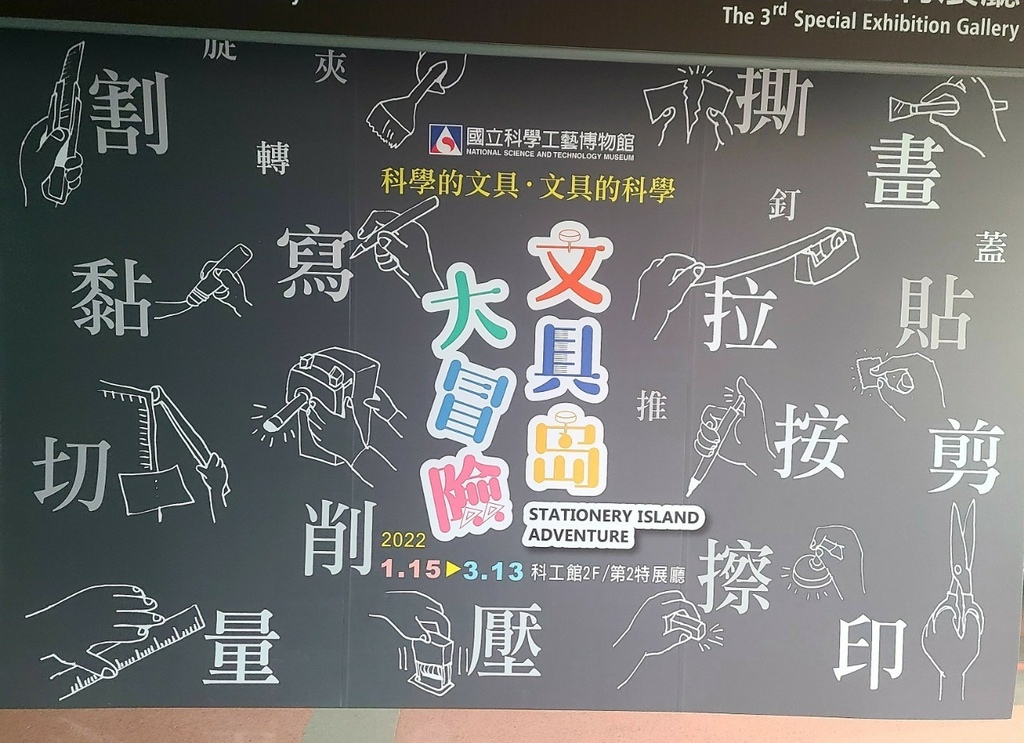 The 3rd Special Exhibition Gallery
旋
夾
割
撕
轉
國立科學工藝博物館
NATIONAL SCIENCE AND TECHNOLOGY MUSEUM
畫
科學的文具・文具的科學
釘
寫
蓋
黏
拉
貼
文具島
大冒險
推
切
按
剪
STATIONERY ISLAND
ADVENTURE
削
2022
1.15▶3.13 科工館2F/第2特展廳
擦
量
壓
印